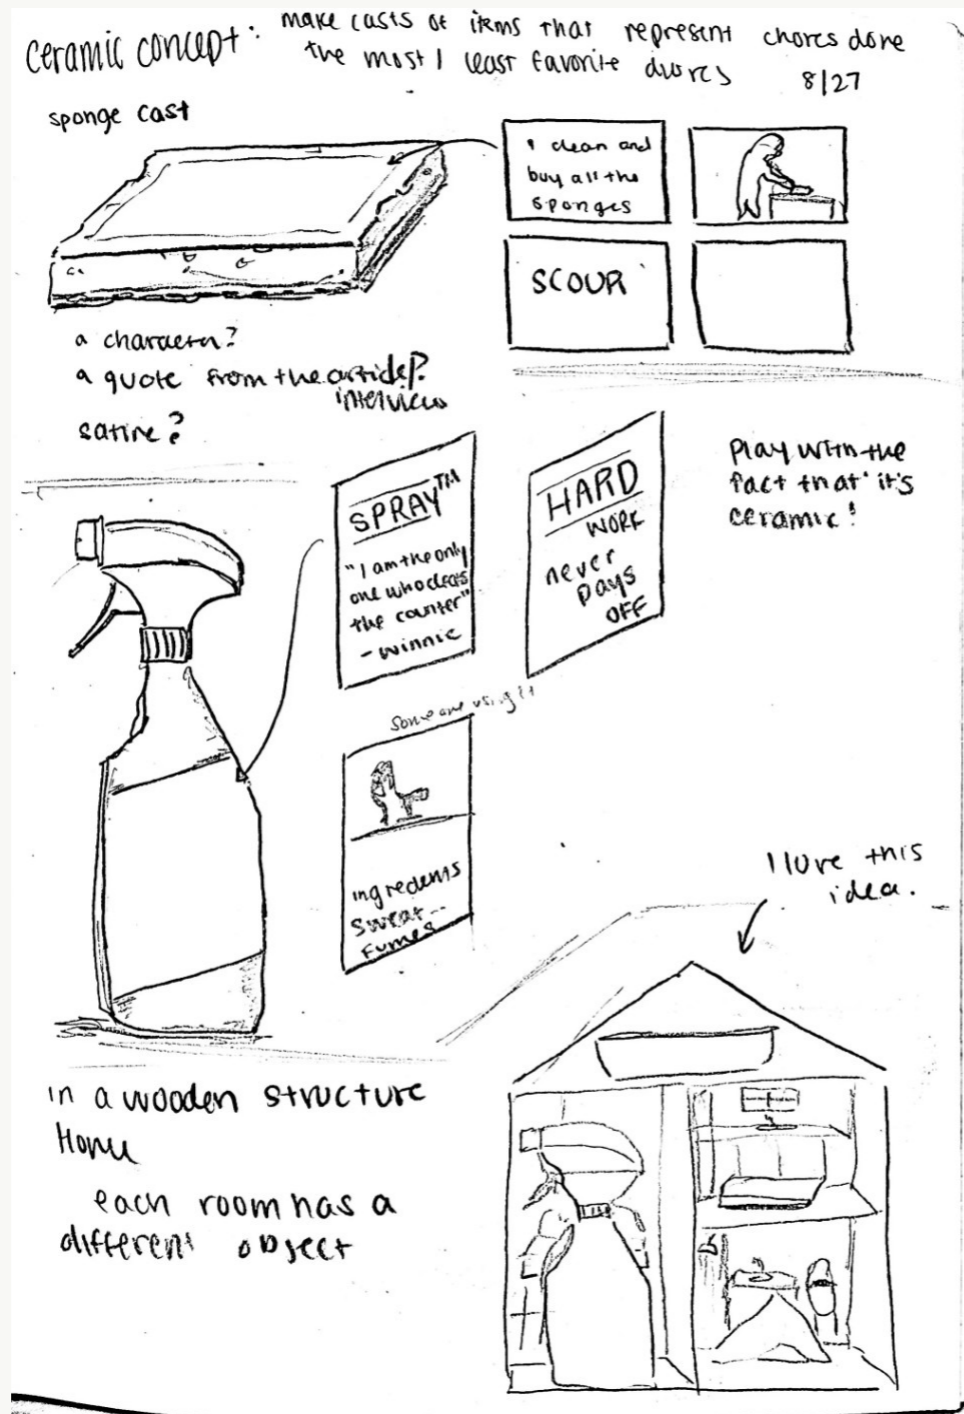 ceramic concept: make casts of items that represent chores done
the most / least favorite chores
8/27
sponge cast
I clean and
buy all the
sponges
SCOUR
a character?
a quote from the article/?
interview
satire?
SPRAY™
"I am the only
one who cleans
the counter"
- winnie
HARD
WORK
never
pays
OFF
Play with the
fact that it's
ceramic!
someone using it
ingredients
sweat...
Fumes
I love this
idea.
in a wooden structure
Home
each room has a
different object